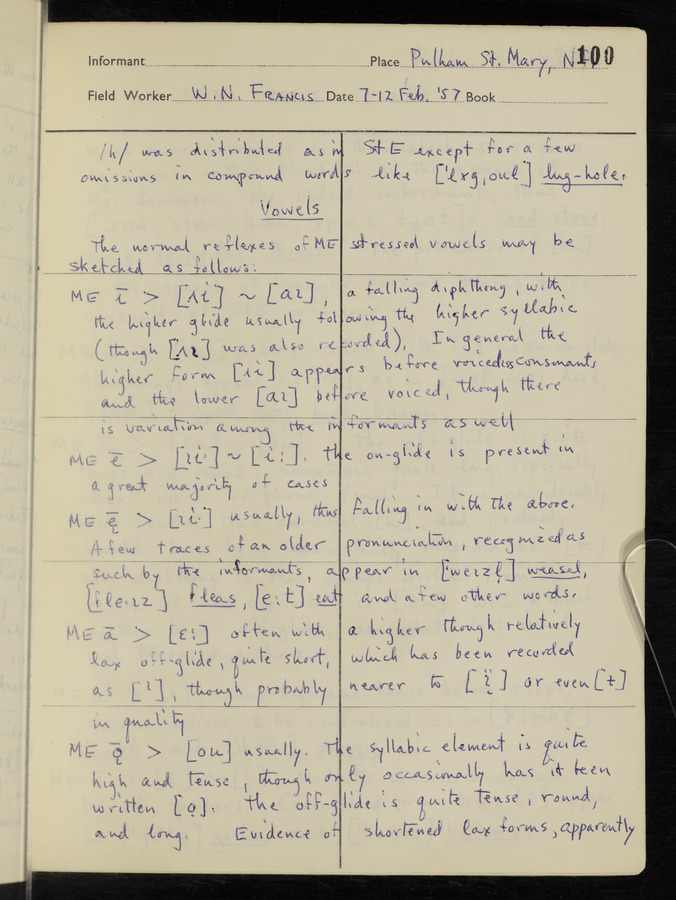 Informant Place Pulham St. Mary, N 100
Field Worker W.N. FRANCIS Date 7-12 Feb. '57 Book
/h/ was distributed as in StE except for a few
omissions in compound words like ['lɤg,oul] lug-hole.
Vowels
The normal reflexes of ME stressed vowels may be
sketched as follows:
ME ī > [ʌi] ~ [aɪ], a falling diphthong, with
the higher glide usually following the higher syllabic
(though [ʌɪ] was also recorded). In general the
higher form [ʌi] appears before voiceless consonants
and the lower [aɪ] before voiced, though there
is variation among the informants as well
ME ē > [ɪi·] ~ [i:]. the on-glide is present in
a great majority of cases
ME ę̄ > [ɪi·] usually, thus falling in with the above.
A few traces of an older pronunciation, recognized as
such by the informants, appear in [weɪzl̩] weasel,
[fle·ɪz] fleas, [e:t] eat and a few other words.
ME ā > [ɛ:] often with a higher though relatively
lax off-glide, quite short, which has been recorded
as [ɪ], though probably nearer to [ï̞] or even [ɨ]
in quality
ME ǭ > [ou] usually. The syllabic element is quite
high and tense, though only occasionally has it been
written [ọ]. the off-glide is quite tense, round,
and long. Evidence of shortened lax forms, apparently